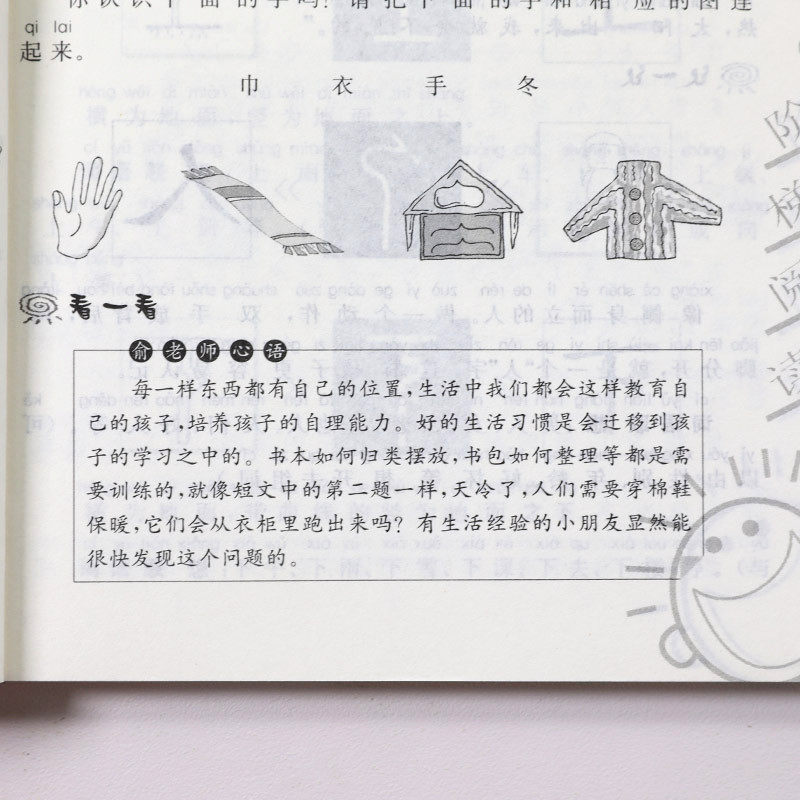 你认识下面的字吗？请把下面的字和相应的图连
qi lai
起来。
巾 衣 手 冬
看一看
俞老师心语
每一样东西都有自己的位置，生活中我们都会这样教育自
己的孩子，培养孩子的自理能力。好的生活习惯是会迁移到孩
子的学习之中的。书本如何归类摆放，书包如何整理等都是需
要训练的，就像短文中的第二题一样，天冷了，人们需要穿棉鞋
保暖，它们会从衣柜里跑出来吗？有生活经验的小朋友显然能
很快发现这个问题的。
阶梯阅读